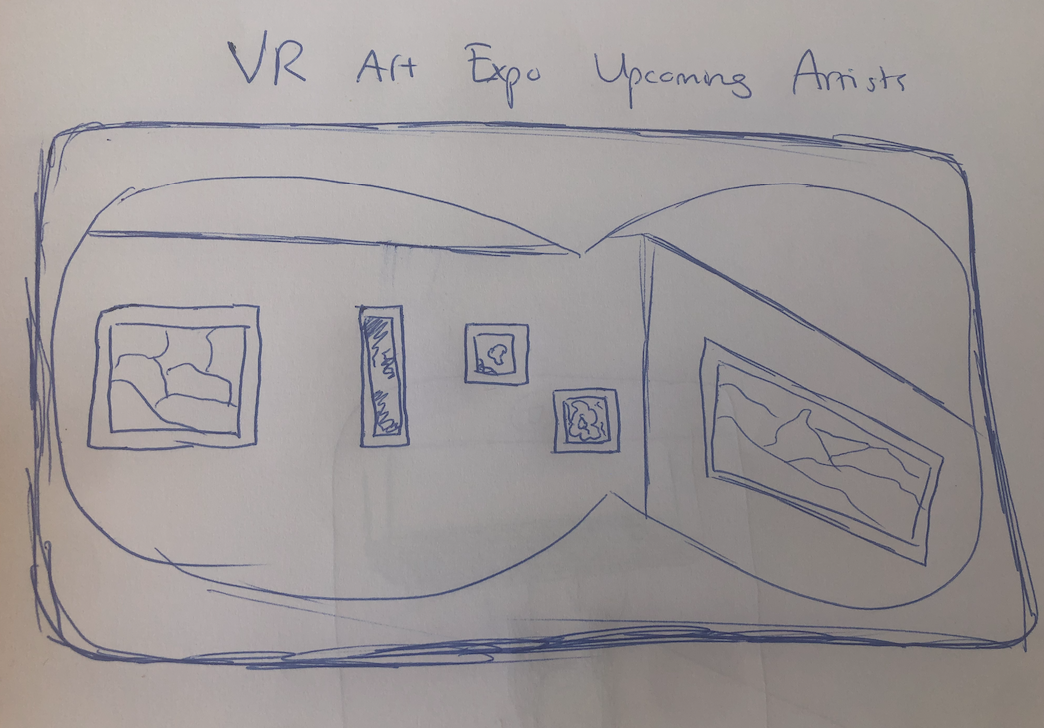 VR Art Expo Upcoming Artists